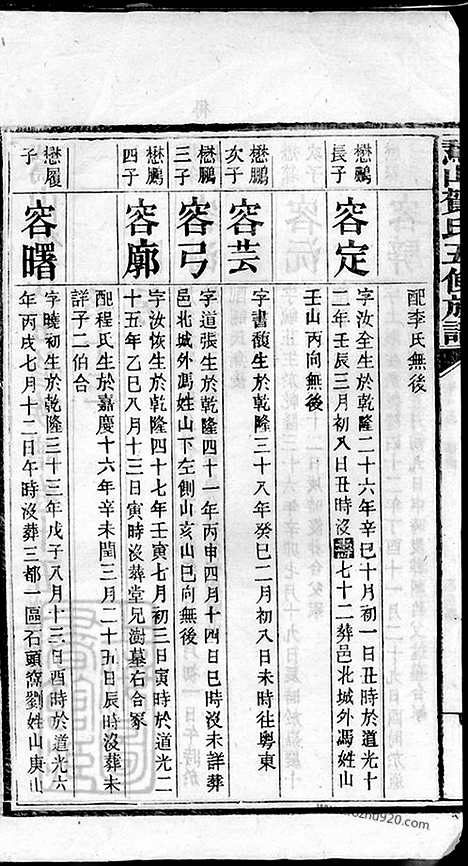 賀氏五修族譜
配李氏無後
懋鵬長子
容定
字汝全生於乾隆二十六年辛巳十月初一日丑時於道光十
二年壬辰三月初八日丑時沒壽七十二葬邑北城外馮姓山
壬山丙向無後
懋鵬次子
容芸
字書馥生於乾隆三十八年癸巳二月初八日未時往粤東
懋鵬三子
容弓
字道張生於乾隆四十一年丙申四月十四日巳時沒未詳葬
邑北城外馮姓山下左側山亥山巳向無後
懋鵬四子
容廓
字汝恢生於乾隆四十七年壬寅七月初三日寅時於道光二
十五年乙巳八月十三日寅時沒葬堂兄澍墓石合冢
配程氏生於嘉慶十六年辛未閏三月二十五日辰時沒葬未
詳子二伯合
懋履子
容曙
字曉初生於乾隆三十三年戊子八月十三日酉時於道光六
年丙戌七月十二日午時沒葬三都一區石頭窩劉姓山庚山